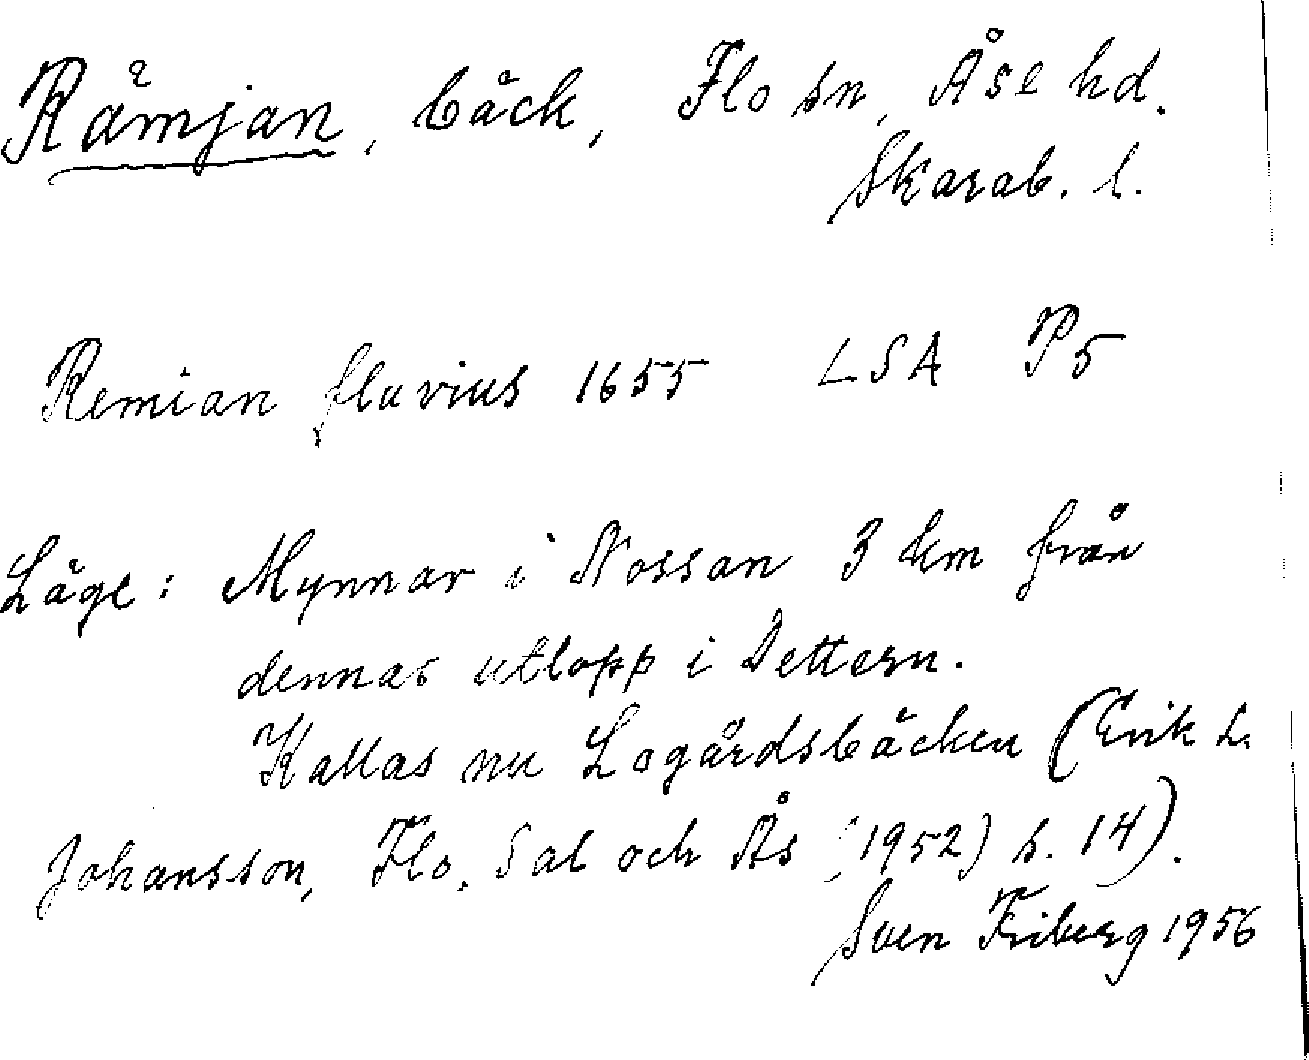 Rämjan, bäck, Flo sn, Åse hd.
Skarab. l.
Remian fluvius 1655 LSA P5
Läge: Mynnar i Nossan 3 km från
dennas utlopp i Dettern.
Kallas nu Logårdsbäcken (Erik L.
Johansson, Flo, Sal och Ås (1952) s. 14).
Sven Friberg 1956